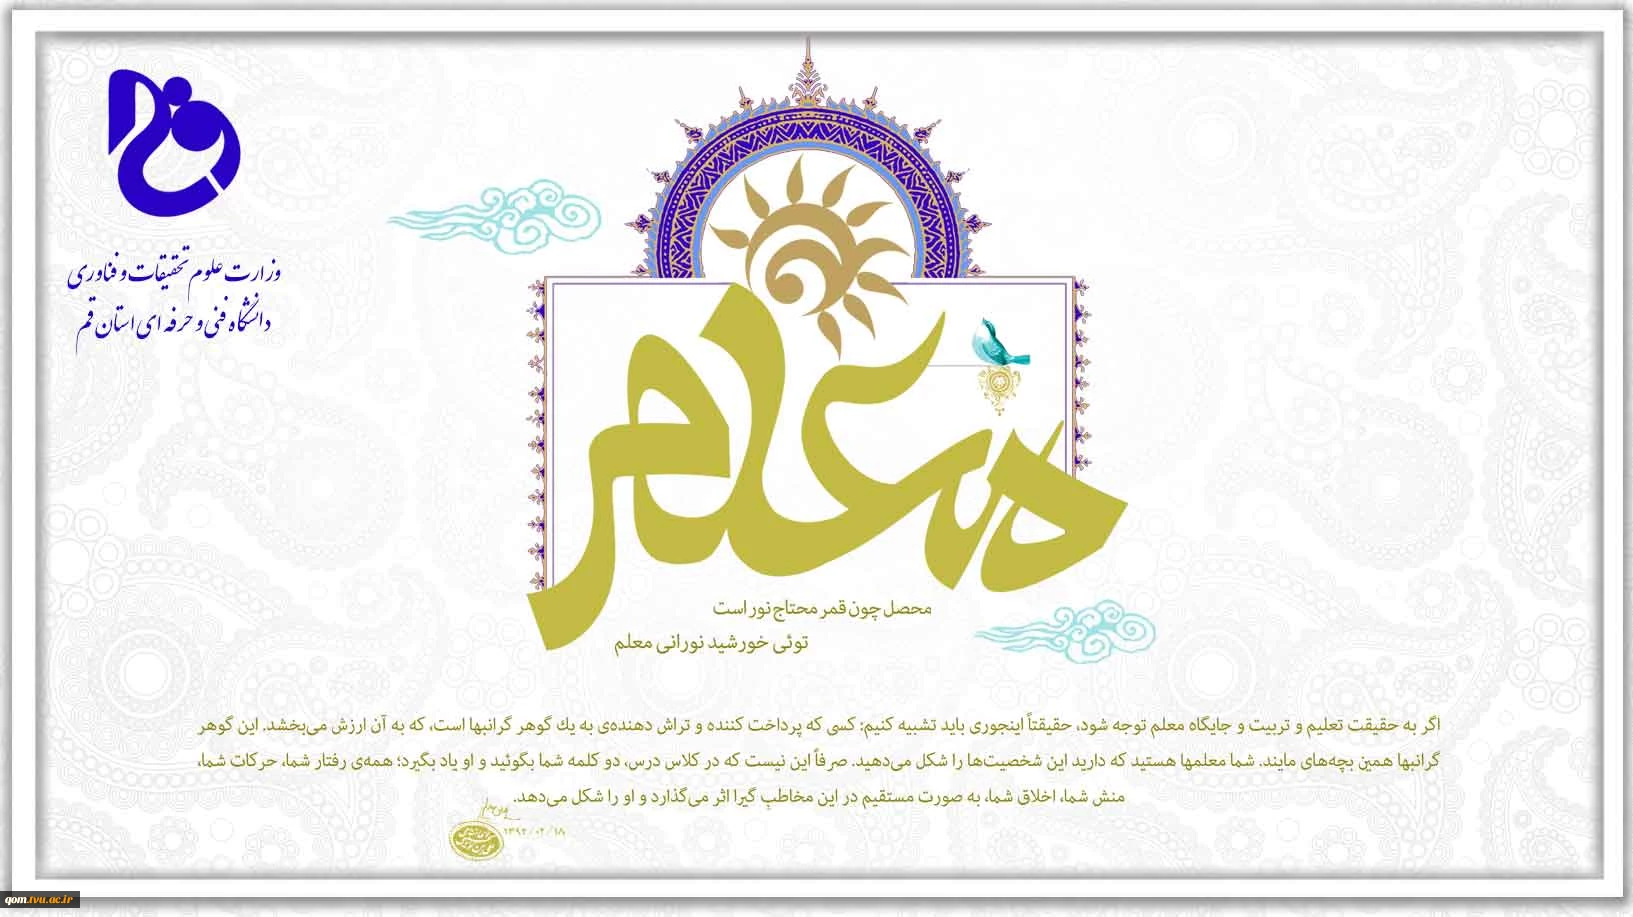 وزارت علوم تحقیقات و فناوری
دانشگاه فنی و حرفه ای استان قم
معلم
محصل چون قمر محتاج نور است
توئی خورشید نورانی معلم
اگر به حقیقت تعلیم و تربیت و جایگاه معلم توجه شود، حقیقتاً اینجوری باید تشبیه کنیم: کسی که پرداخت کننده و تراش دهنده‌ی به یك گوهر گرانبها است، که به آن ارزش می‌بخشد. این گوهر
گرانبها همین بچه‌های مایند. شما معلمها هستید که دارید این شخصیت‌ها را شکل می‌دهید. صرفاً این نیست که در کلاس درس، دو کلمه شما بگوئید و او یاد بگیرد؛ همه‌ی رفتار شما، حرکات شما،
منش شما، اخلاق شما، به صورت مستقیم در این مخاطبِ گیرا اثر می‌گذارد و او را شکل می‌دهد.
۱۳۹۲/۰۲/۱۸
qom.tvu.ac.ir